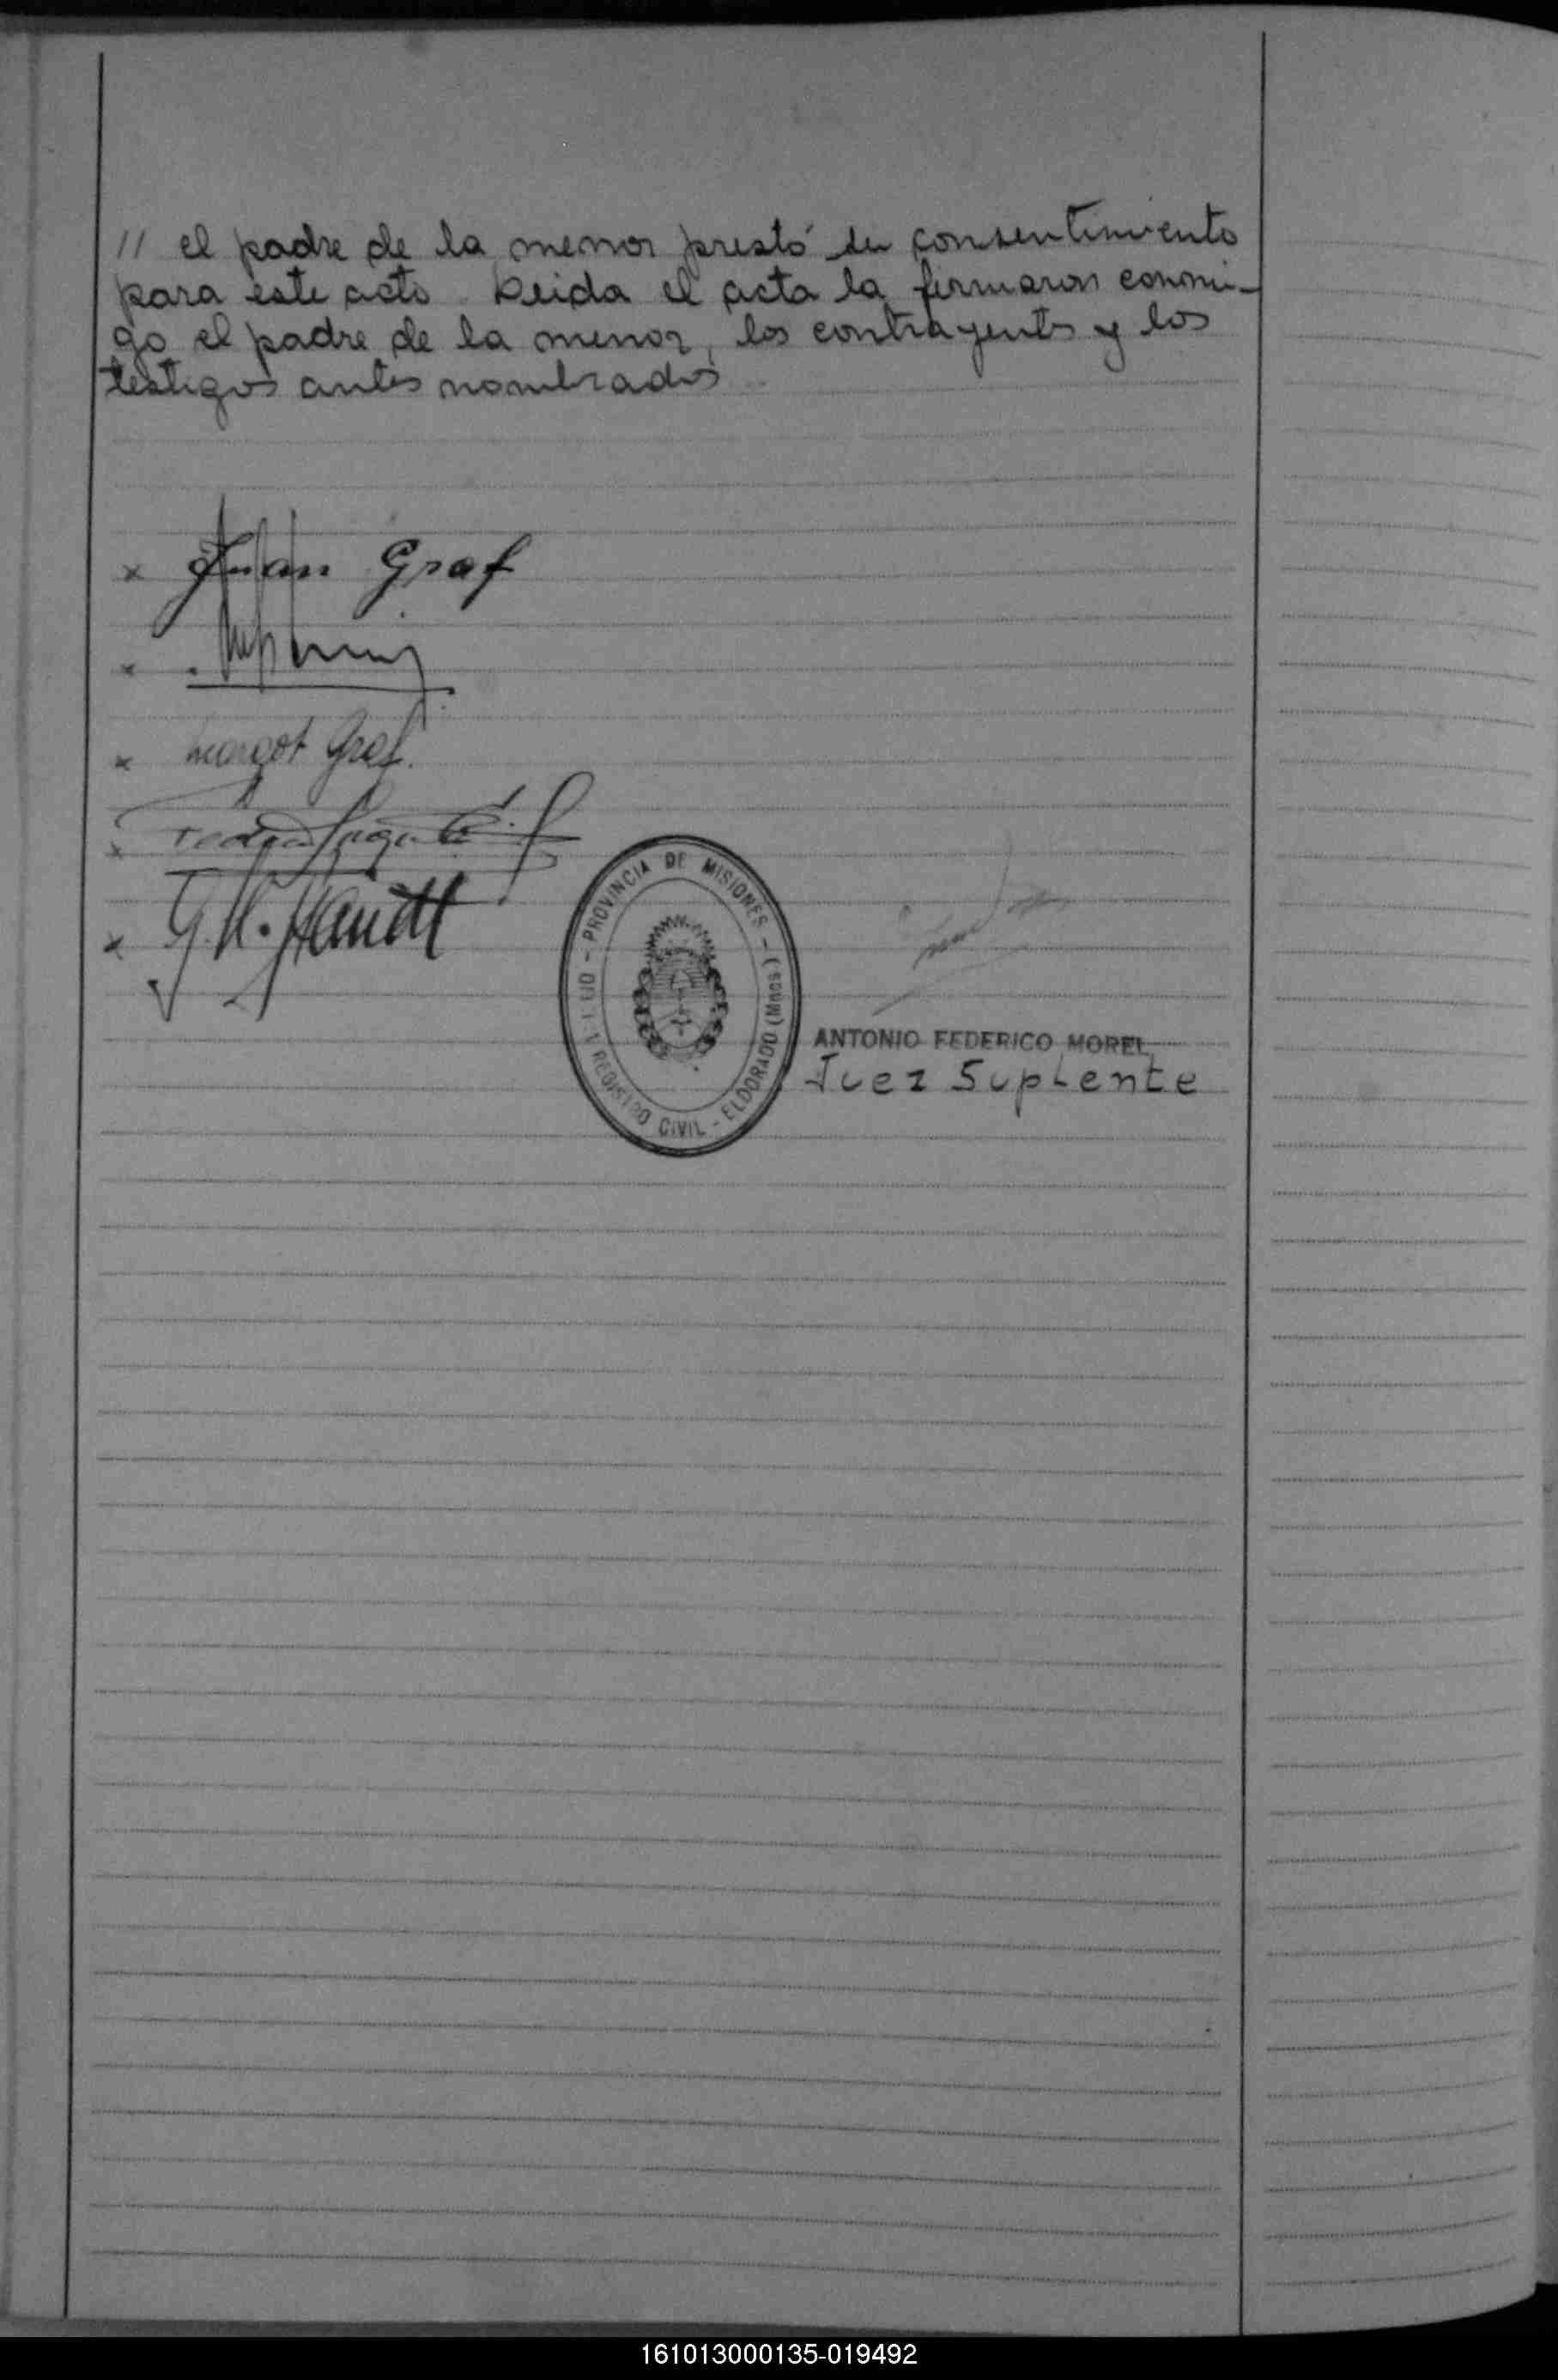 // el padre de la menor prestó su consentimiento
para este acto Leida el acta la firmaron conmi-
go el padre de la menor, los contrayentes y los
testigos antes nombrados
x Juan Graf
x
x Margot Graf.
x
x G. H. Handl
PROVINCIA DE MISIONES - REGISTRO CIVIL - ELDORADO (Mnes)
ANTONIO FEDERICO MOREL
Juez Suplente
161013000135-019492